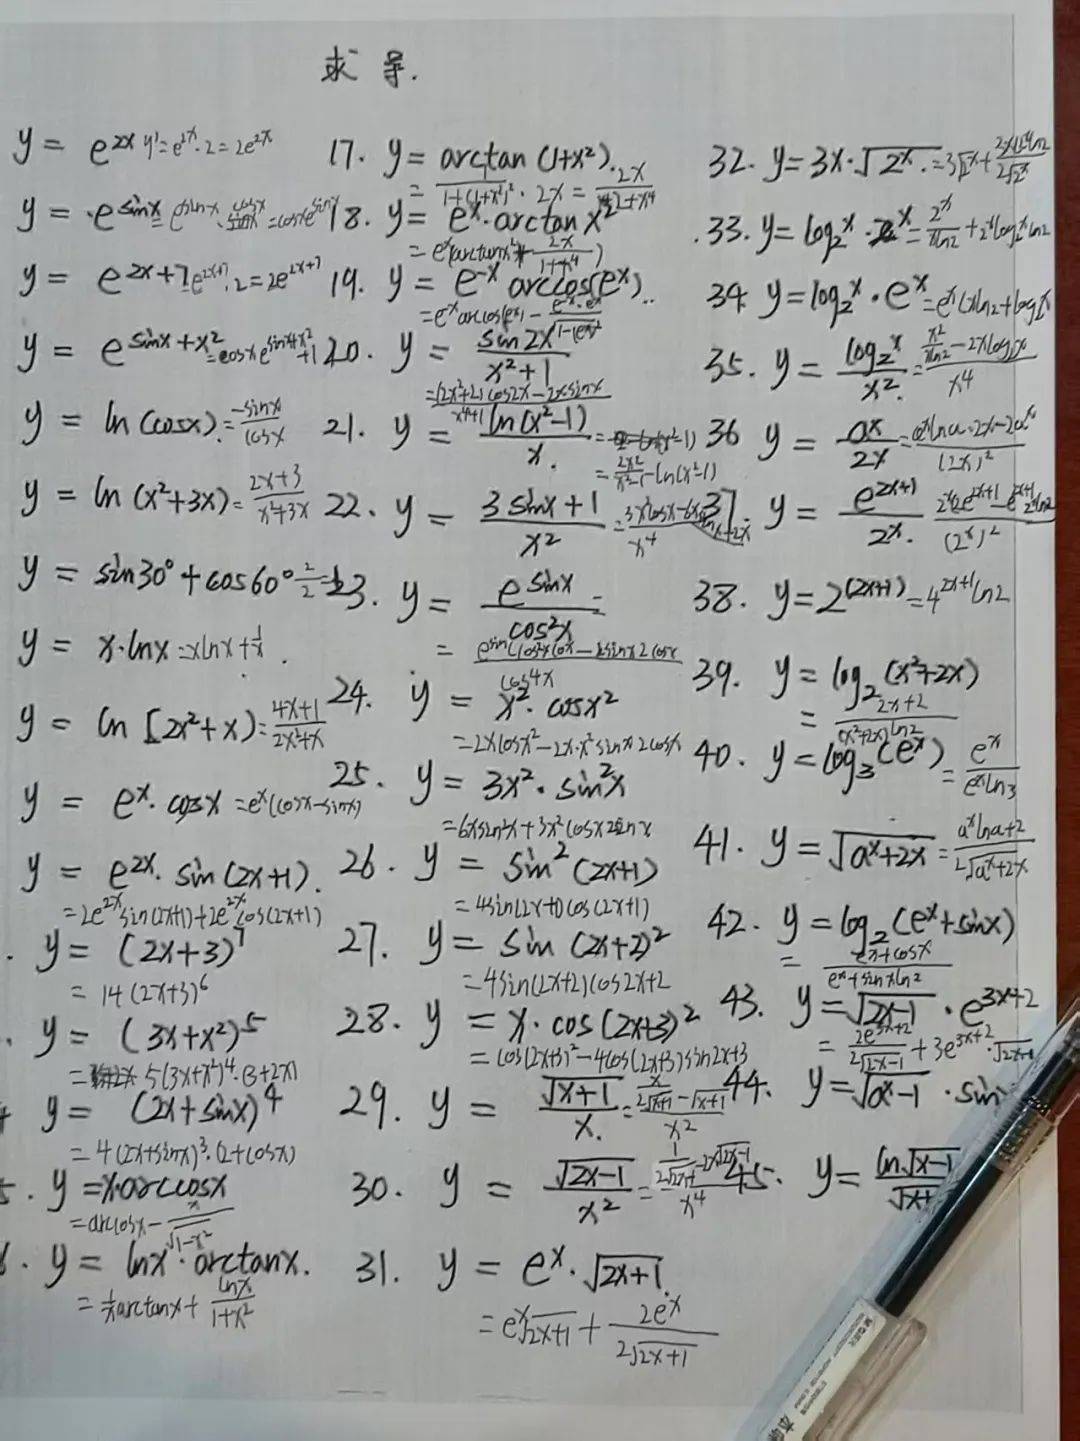 求导.
y = e^{2x} y'=e^{2x}·2=2e^{2x}
y = e^{sinx}
y = e^{2x+7} =e^{2x+7}·2=2e^{2x+7}
y = e^{sinx+x²}
y = ln(cosx) = \frac{-sinx}{cosx}
y = ln(x²+3x) = \frac{2x+3}{x²+3x}
y = sin30°+cos60°
y = x·lnx = xlnx+\frac{1}{x}.
y = ln[2x²+x) = \frac{4x+1}{2x²+x}
y = e^x·cosx =e^x(cosx-sinx)
y = e^{2x}·sin(2x+1).
=2e^{2x}sin(2x+1)+2e^{2x}cos(2x+1)
y = (2x+3)^7
= 14(2x+3)^6
y = (3x+x²)^5
= 5(3x+x²)^4·(3+2x)
y = (2x+sinx)^4
= 4(2x+sinx)³·(2+cosx)
y = x·arccosx
=arccosx-\frac{x}{\sqrt{1-x²}}
y = lnx·arctanx.
= \frac{1}{x}arctanx+\frac{lnx}{1+x²}
17. y = arctan(1+x²).
= \frac{1}{1+(1+x²)²}·2x =
18. y = e^x·arctanx²
= e^x(arctanx²+\frac{2x}{1+x^4})
19. y = e^{-x} arccos(e^x)..
20. y = \frac{sin2x}{x²+1}
= \frac{(2x²+2)cos2x-2xsinx}{x^4+1}
21. y = \frac{ln(x²-1)}{x.}
= \frac{2x²}{x²-1}-ln(x²-1)
22. y = \frac{3sinx+1}{x²}
23. y = \frac{e^{sinx}}{cos²x} =
24. y = x²·cosx²
=2xcosx²-2x·x²sinx2cosx
25. y = 3x²·sin²x
=6xsin²x+3x²cosx2sinx
26. y = sin²(2x+1)
= 4sin(2x+1)cos(2x+1)
27. y = sin(2x+2)²
=4sin(2x+2)cos2x+2
28. y = x·cos(2x+3)²
= cos(2x+3)²-4cos(2x+3)sin2x+3
29. y = \frac{\sqrt{x+1}}{x.} = \frac{\frac{x}{2\sqrt{x+1}}-\sqrt{x+1}}{x²}
30. y = \frac{\sqrt{2x-1}}{x²}
31. y = e^x·\sqrt{2x+1}.
= e^x\sqrt{2x+1}+\frac{2e^x}{2\sqrt{2x+1}}
32. y=3x·\sqrt{2^x}.
33. y=log_2^x·2^x = \frac{2^x}{xln2}+2^xlog_2^xln2
34. y=log_2^x·e^x =e^x(xln2+log_2^x)
35. y = \frac{log_2^x}{x².} = \frac{\frac{x²}{xln2}-2xlog_2^x}{x^4}
36 y = \frac{a^x}{2x} = \frac{a^xlna·2x-2a^x}{(2x)²}
37. y = \frac{e^{2x+1}}{2^x.}
38. y=2^{(2x+1)} =4^{2x+1}ln2
39. y = log_2(x²+2x)
= \frac{2x+2}{(x²+2x)ln2}
40. y=log_3(e^x) = \frac{e^x}{e^xln3}
41. y=\sqrt{a^x+2x} = \frac{a^xlna+2}{2\sqrt{a^x+2x}}
42. y = log_2(e^x+sinx)
= \frac{e^x+cosx}{e^x+sinxln2}
43. y=\sqrt{2x-1}·e^{3x+2}
= \frac{2e^{3x+2}}{2\sqrt{2x-1}}+3e^{3x+2}·\sqrt{2x-1}
44. y=\sqrt{a^x-1}·sin
45. y=\frac{ln\sqrt{x-1}}{\sqrt{x+}}